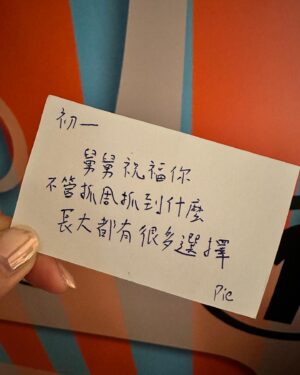 初一
舅舅祝福你
不管抓周抓到什麼
長大都有很多選擇
Pic